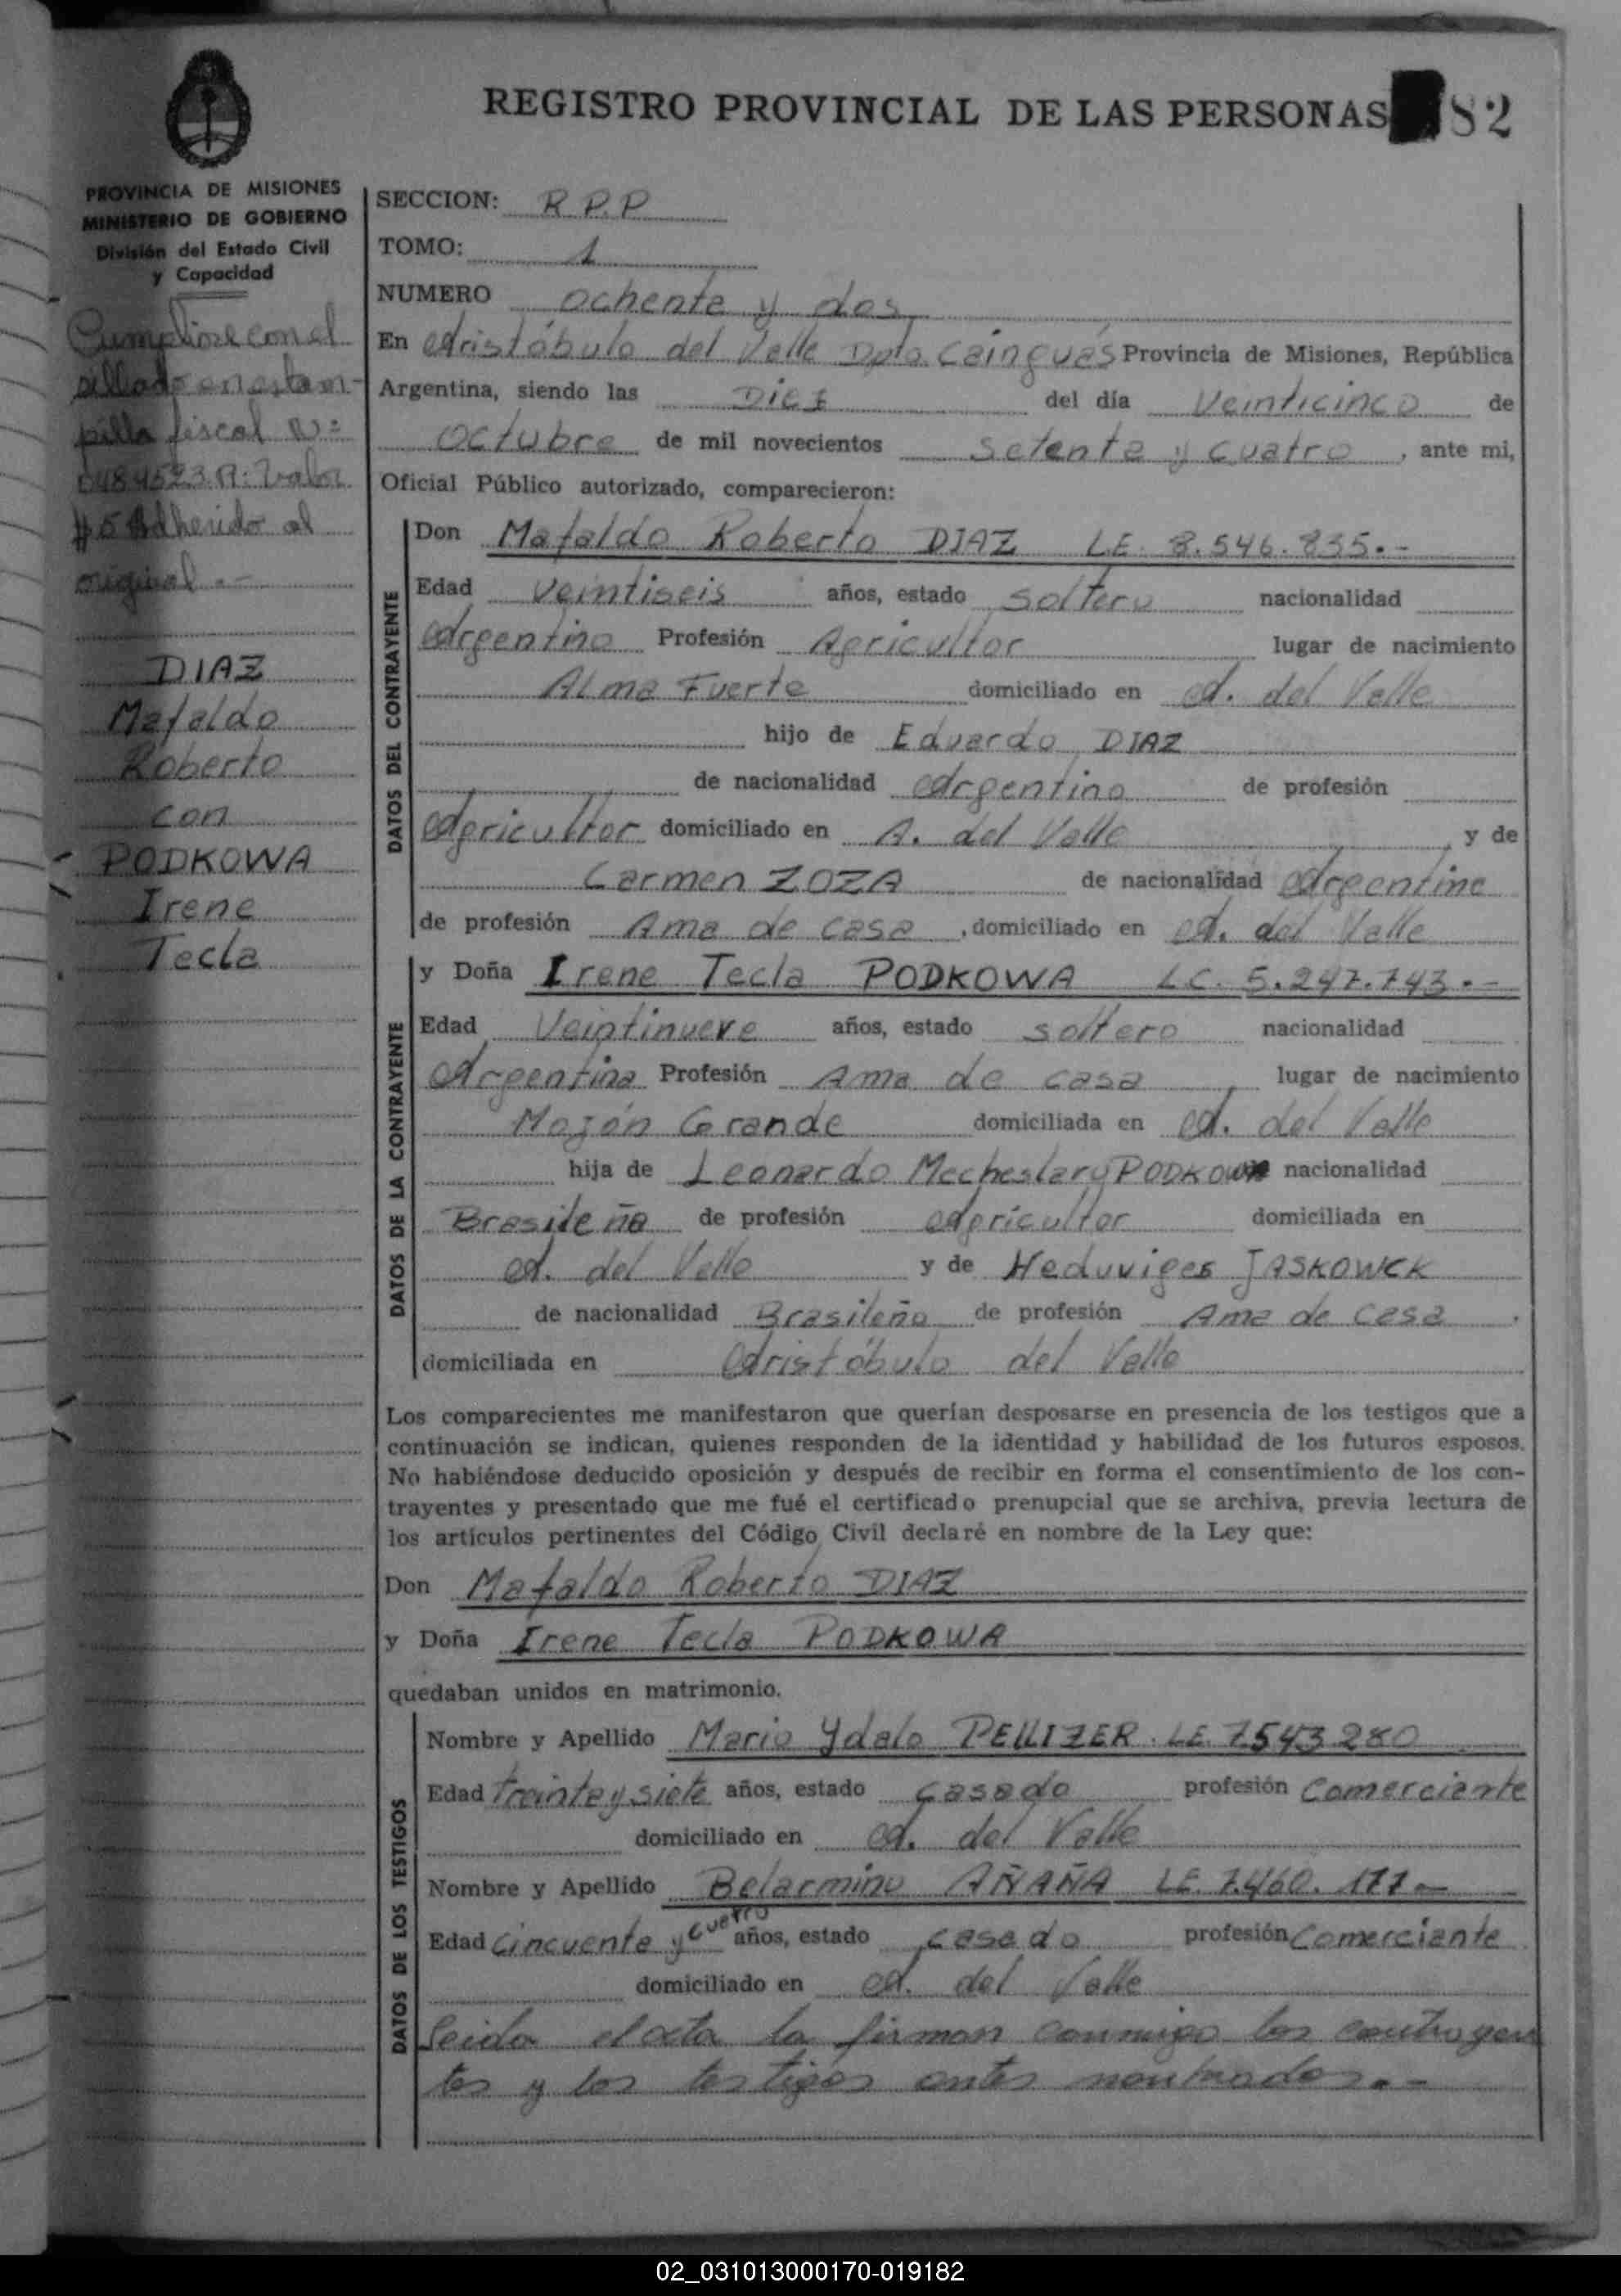 REGISTRO PROVINCIAL DE LAS PERSONAS 82
PROVINCIA DE MISIONES
MINISTERIO DE GOBIERNO
División del Estado Civil
y Capacidad
Cumpliose con el
sellado en estam-
pilla fiscal Nº
valor
$5 Adherido al
original.-
DIAZ
Mafaldo
Roberto
con
PODKOWA
Irene
Tecla
SECCION: R.P.P
TOMO: 1
NUMERO ochenta y dos
En Aristóbulo del Valle Dpto. Cainguás Provincia de Misiones, República
Argentina, siendo las Diez del día Veinticinco de
Octubre de mil novecientos setenta y cuatro, ante mi,
Oficial Público autorizado, comparecieron:
DATOS DEL CONTRAYENTE
Don Mafaldo Roberto DIAZ LE. 8.546.835.-
Edad Veintiseis años, estado soltero nacionalidad
Argentino Profesión Agricultor lugar de nacimiento
Alma Fuerte domiciliado en A. del Valle
hijo de Eduardo DIAZ
de nacionalidad Argentina de profesión
Agricultor domiciliado en A. del Valle y de
Carmen ZOZA de nacionalidad Argentina
de profesión Ama de casa, domiciliado en A. del Valle
DATOS DE LA CONTRAYENTE
y Doña Irene Tecla PODKOWA LC. 5.247.743.-
Edad Veintinueve años, estado soltero nacionalidad
Argentina Profesión Ama de casa, lugar de nacimiento
Mojón Grande domiciliada en A. del Valle
hija de Leonardo Mecheslary PODKOWA nacionalidad
Brasileña de profesión Agricultor domiciliada en
A. del Valle y de Heduviges JASKOWCK
de nacionalidad Brasileña de profesión Ama de casa.
domiciliada en Aristóbulo del Valle
Los comparecientes me manifestaron que querían desposarse en presencia de los testigos que a
continuación se indican, quienes responden de la identidad y habilidad de los futuros esposos.
No habiéndose deducido oposición y después de recibir en forma el consentimiento de los con-
trayentes y presentado que me fué el certificado prenupcial que se archiva, previa lectura de
los artículos pertinentes del Código Civil declaré en nombre de la Ley que:
Don Mafaldo Roberto DIAZ
y Doña Irene Tecla PODKOWA
quedaban unidos en matrimonio.
DATOS DE LOS TESTIGOS
Nombre y Apellido Mario Ydalo PELLIZER. LE. 7.543.280
Edad Treinta y siete años, estado casado profesión Comerciante
domiciliado en A. del Valle
Nombre y Apellido Belarmino AÑAÑA LE. 7.460.177.-
Edad Cincuenta y cuatro años, estado casado profesión Comerciante
domiciliado en A. del Valle
Leida el acta la firman conmigo los contrayen
tes y los testigos antes nombrados.-
02_031013000170-019182